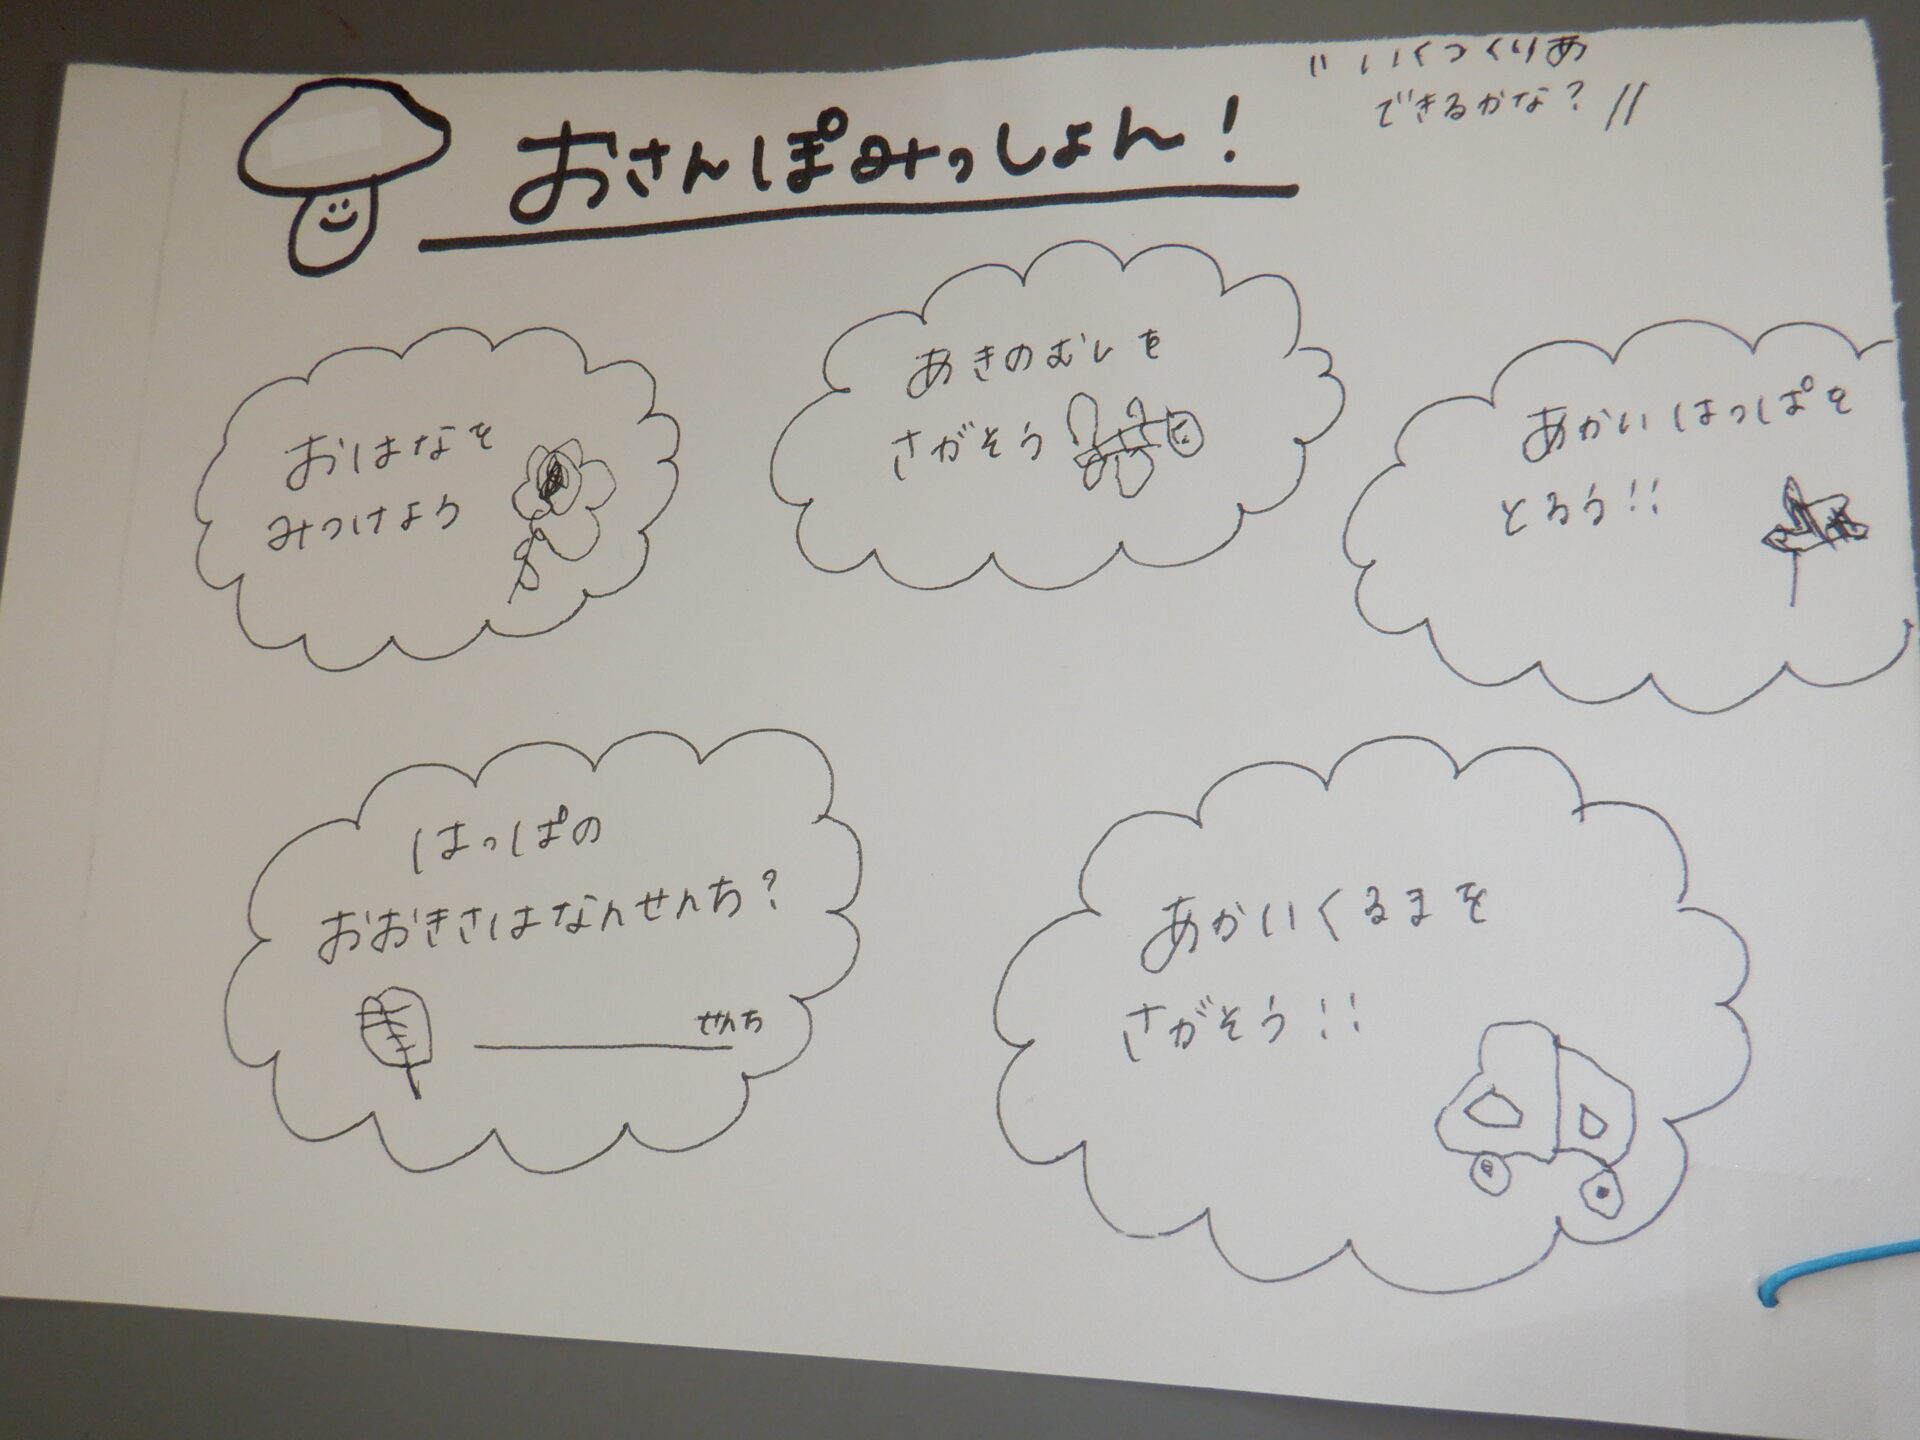 おさんぽみっしょん！
"いくつくりあ
できるかな？"
おはなを
みつけよう
あきのむしを
さがそう
あかいはっぱを
とろう!!
はっぱの
おおきさはなんせんち？
せんち
あかいくるまを
さがそう!!